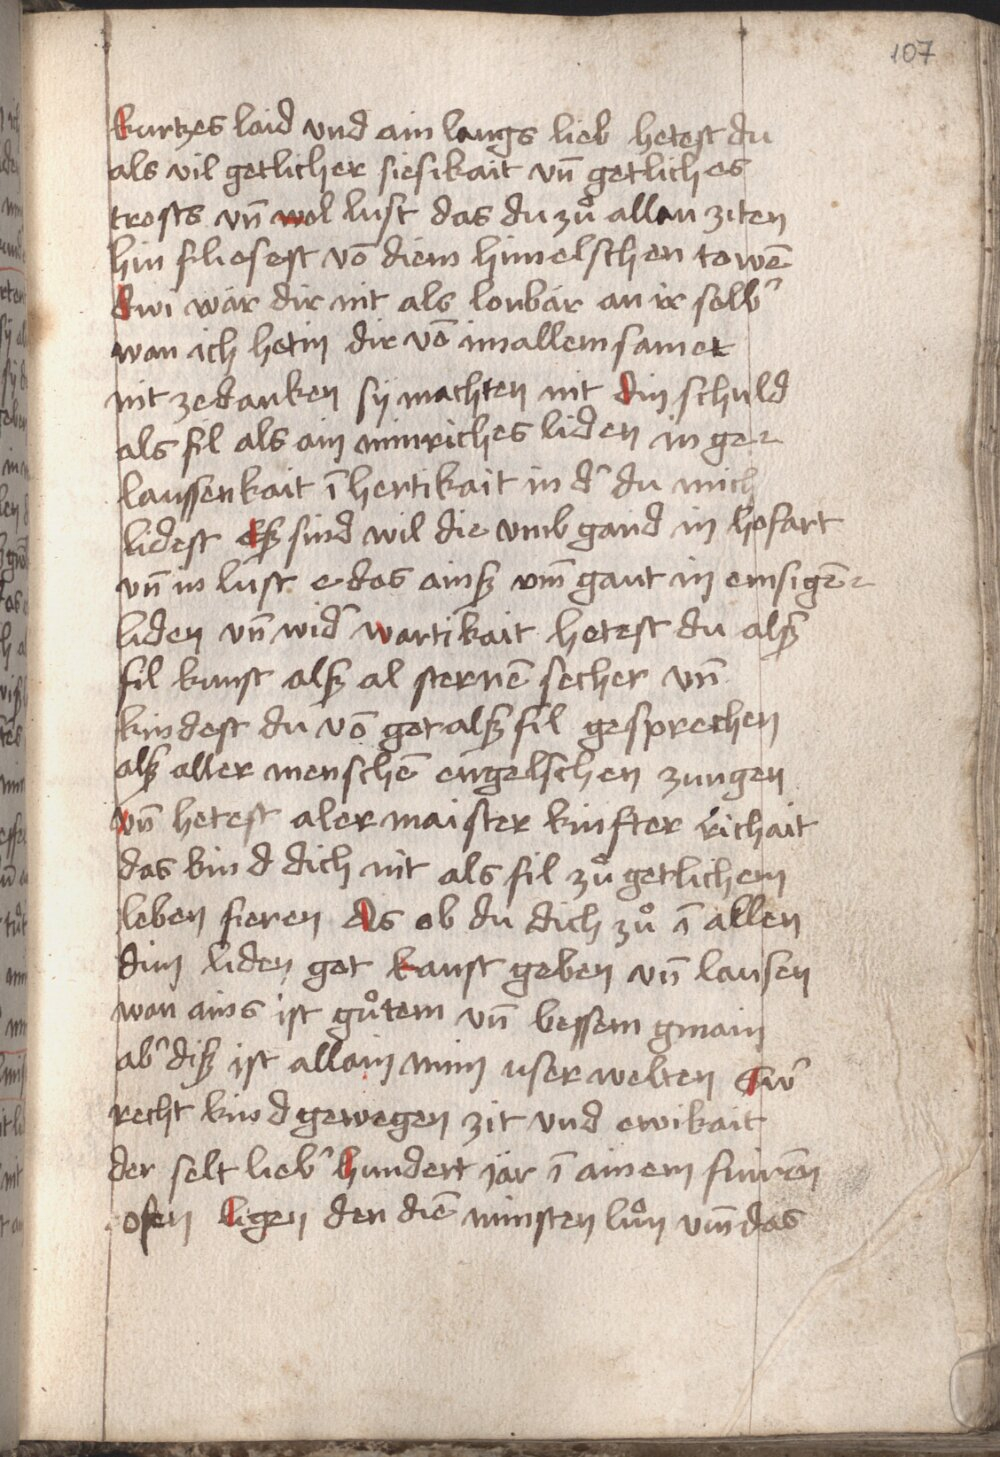 107
kurtzes laid vnd ain langs lieb hetest du
als vil getlicher siesikait vn̄ getliches
trosts vn̄ wol lust das du zů allan ziten
hin fliesest vō diem himelschen towē
dwi wär dir nit als lonbär an ir selb᾽
wan ich hetin dir vō in allem samet
nit ze danken sÿ machten nit din schuld
als fil als ain minriches liden in ge⸗
laussenkait ī hertikait in d᾽ du mich
lidest eß sind wil die vmb gand in hofart
vn̄ in lust e das ainß vm̄ gant in emsigē⸗
liden vn̄ wid᾽ wartikait hetest du alß
fil kunst alß al sternē secher vn̄
kindest du vō got alß fil gesprechen
alß aller menschē engelschen zungen
vn̄ hetest aler maister kinster richait
das kind dich nit als fil zů getlichem
leben fieren als ob du dich zů ī allen
dim liden got kanst geben vn̄ lausen
wan ains ist gůtem vn̄ bessem gmain
ab᾽ diß ist allain mim userwelten
recht kind gewegen zit vnd ewikait
der selt lieb᾽ hundert jär ī ainem fiurēn
ofen ligen den diē minsten lůn vm̄ das